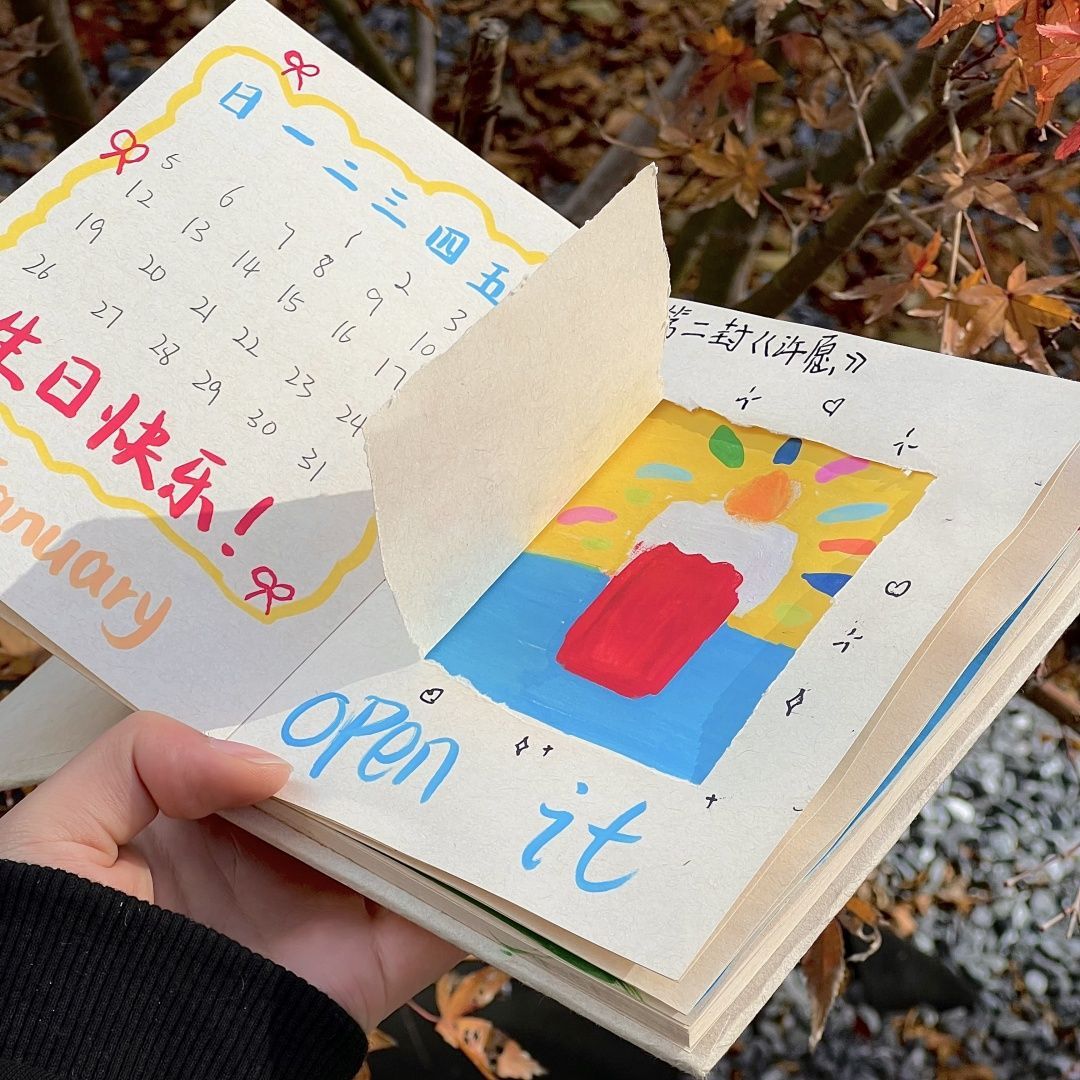 日 一 二 三 四 五
1 2 3
5 6 7 8 9 10
12 13 14 15 16 17
19 20 21 22 23 24
26 27 28 29 30 31
生日快乐!
January
第二封《许愿》
open it